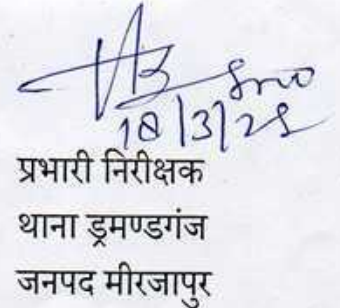 18/3/25
प्रभारी निरीक्षक
थाना ड्रमण्डगंज
जनपद मीरजापुर